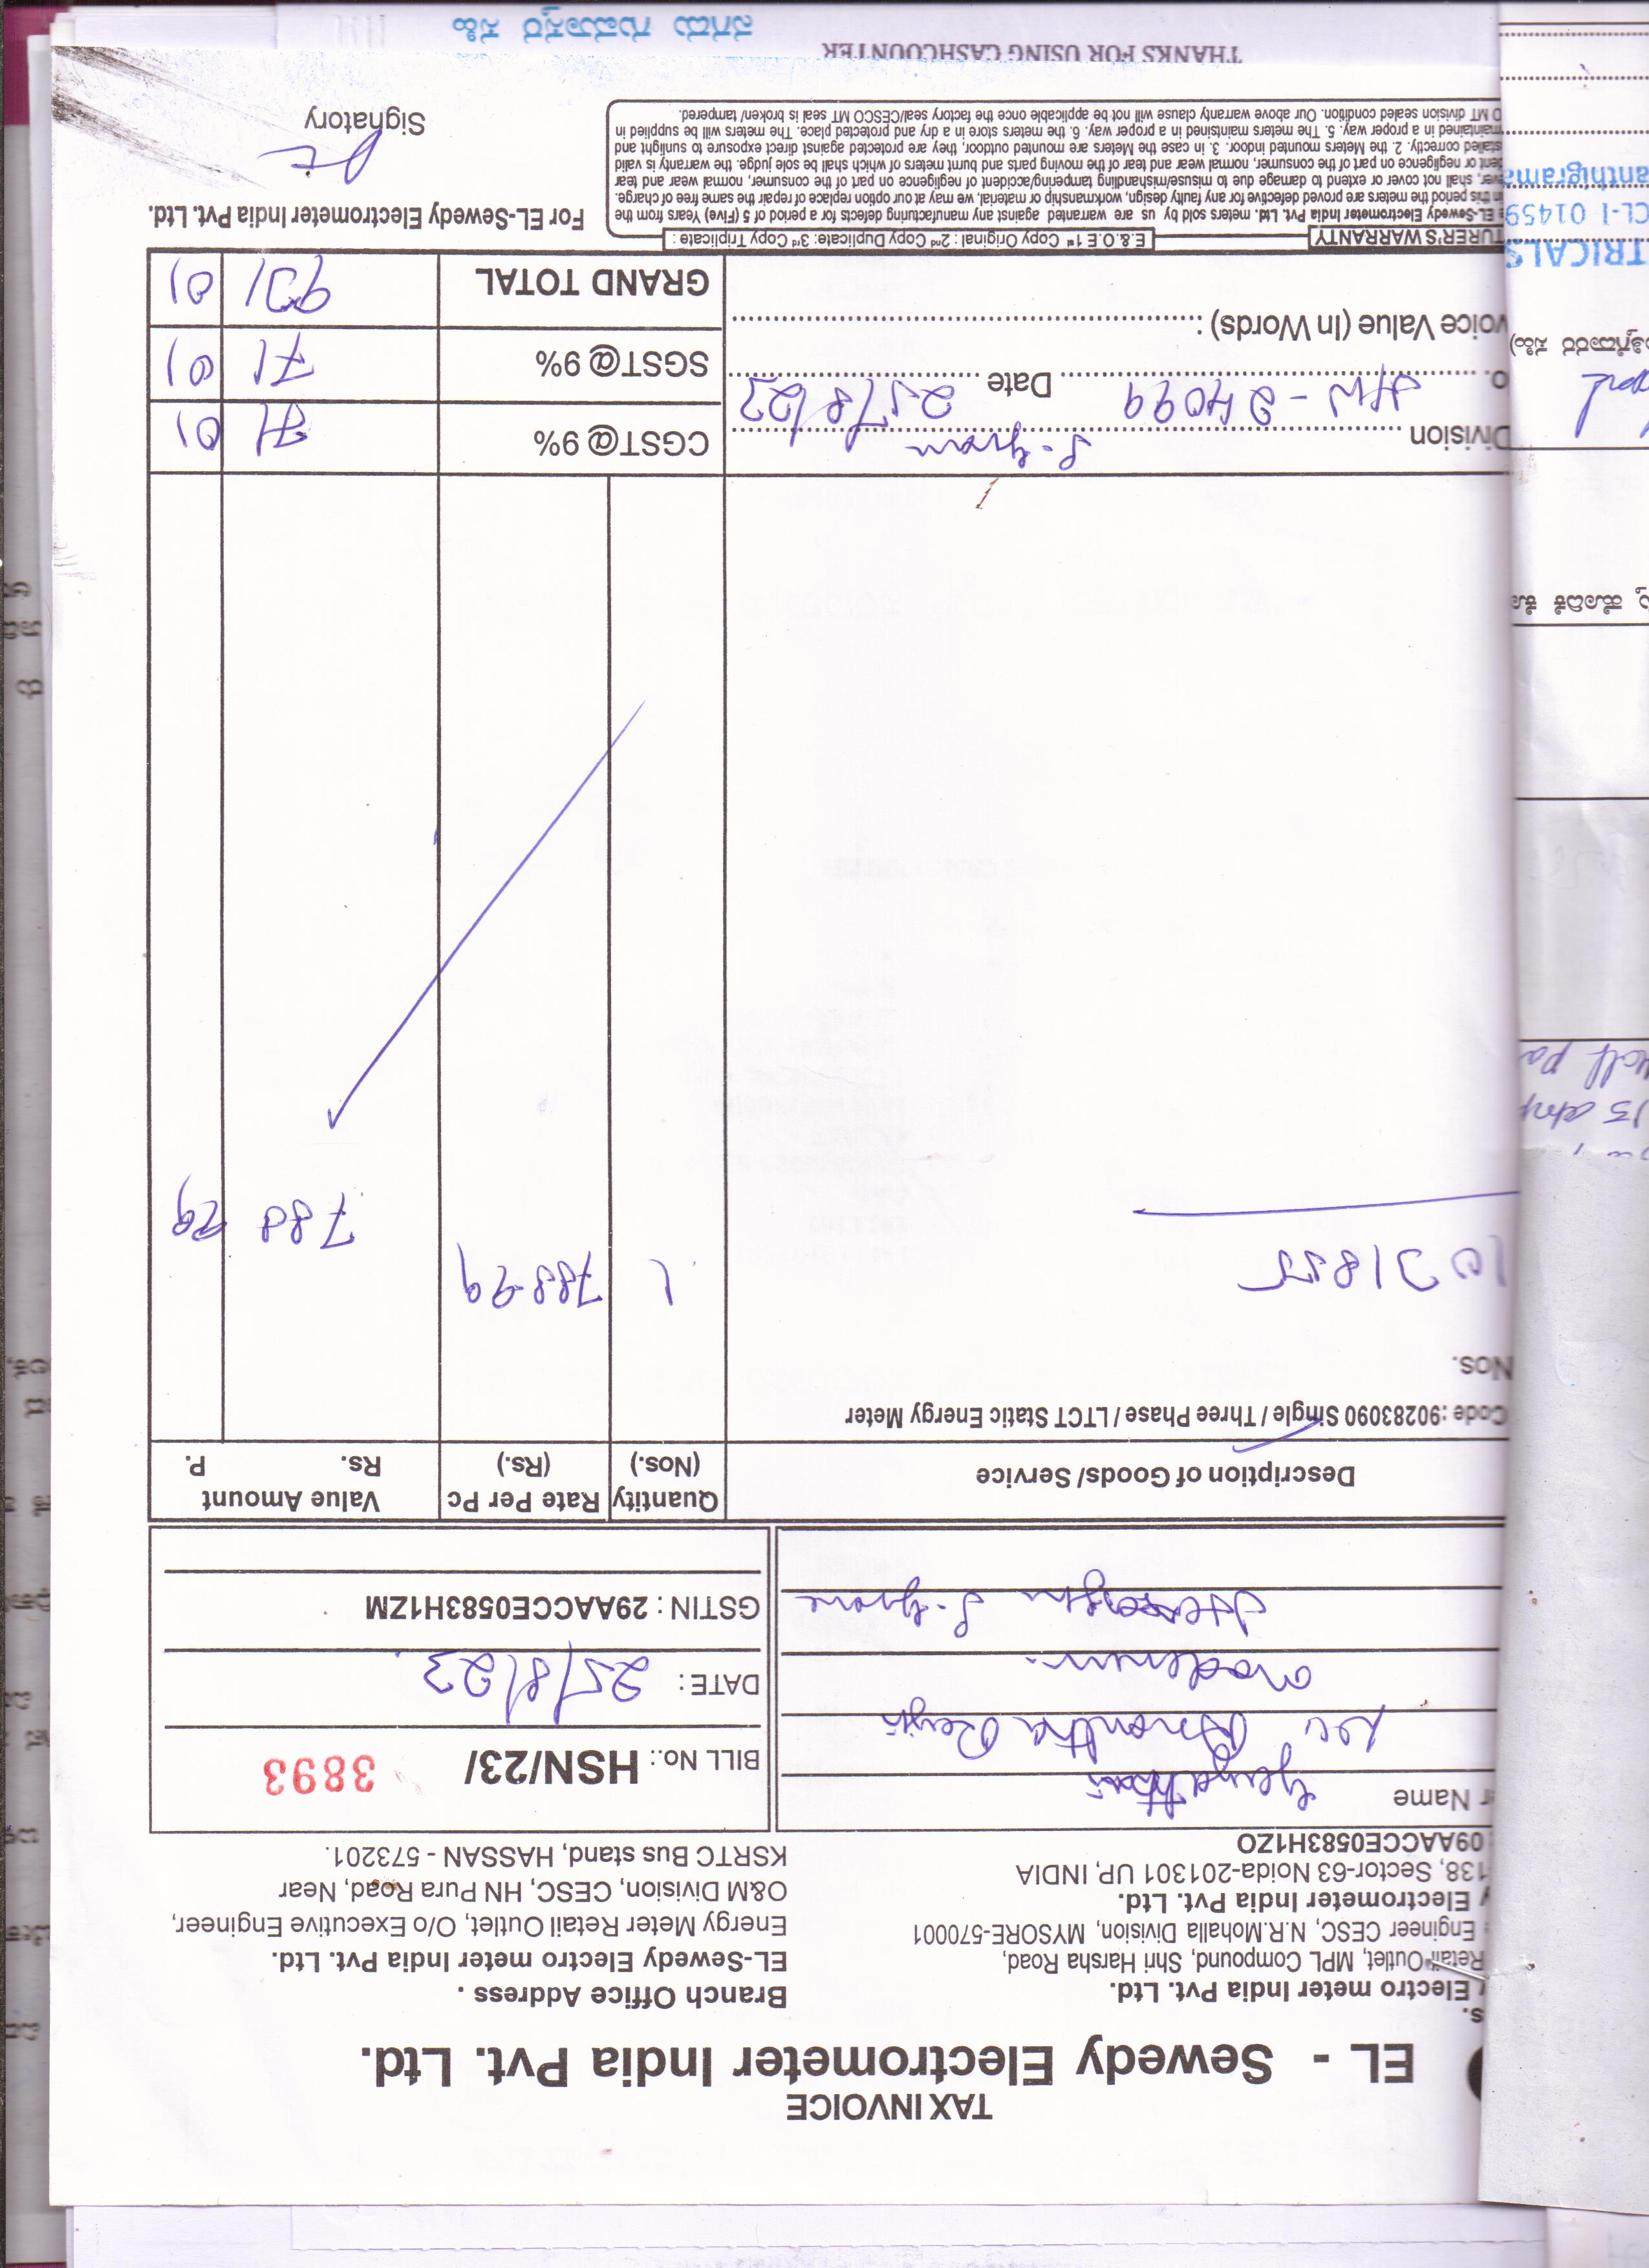 TAX INVOICE
EL - Sewedy Electrometer India Pvt. Ltd.
s.
Electro meter India Pvt. Ltd.
Retail Outlet, MPL Compound, Shri Harsha Road,
Engineer CESC, N.R.Mohalla Division, MYSORE-570001
Electrometer India Pvt. Ltd.
138, Sector-63 Noida-201301 UP, INDIA
09AACCE0583H1ZO
Branch Office Address .
EL-Sewedy Electro meter India Pvt. Ltd.
Energy Meter Retail Outlet, O/o Executive Engineer,
O&M Division, CESC, HN Pura Road, Near
KSRTC Bus stand, HASSAN - 573201.
r Name
BILL No.: HSN/23/ 3893
DATE: 25/8/23
GSTIN : 29AACCE0583H1ZM
Description of Goods/ Service
Quantity (Nos.)
Rate Per Pc (Rs.)
Value Amount
Rs. P.
Code :90283090 Single / Three Phase / LTCT Static Energy Meter
Nos.
1 788-99 788 99
Division S-gram
o. Date 25/8/23
voice Value (In Words) :
CGST@ 9% 71 01
SGST@ 9% 71 01
GRAND TOTAL 931 01
TURER'S WARRANTY
E.&.O.E 1st Copy Original : 2nd Copy Duplicate: 3rd Copy Triplicate :
EL-Sewedy Electrometer India Pvt. Ltd. meters sold by us are warranted against any manufacturing defects for a period of 5 (Five) Years from the
in this period the meters are proved defective for any faulty design, workmanship or material, we may at our option replace of repair the same free of charge.
ver, shall not cover or extend to damage due to misuse/mishandling tampering/accident of negligence on part of the consumer, normal wear and tear
dent or negligence on part of the consumer, normal wear and tear of the moving parts and burnt meters of which shall be sole judge. the warranty is valid
stalled correctly. 2. the Meters mounted indoor. 3. in case the Meters are mounted outdoor, they are protected against direct exposure to sunlight and
maintained in a proper way. 5. The meters maintsined in a proper way. 6. the meters store in a dry and protected place. The meters will be supplied in
O MT division sealed condition. Our above warranty clause will not be applicable once the factory seal/CESCO MT seal is broken/ tampered.
For EL-Sewedy Electrometer India Pvt. Ltd.
Signatory
THANKS FOR USING CASHCOUNTER
TRICALS
CL-I 01459
anthigrama